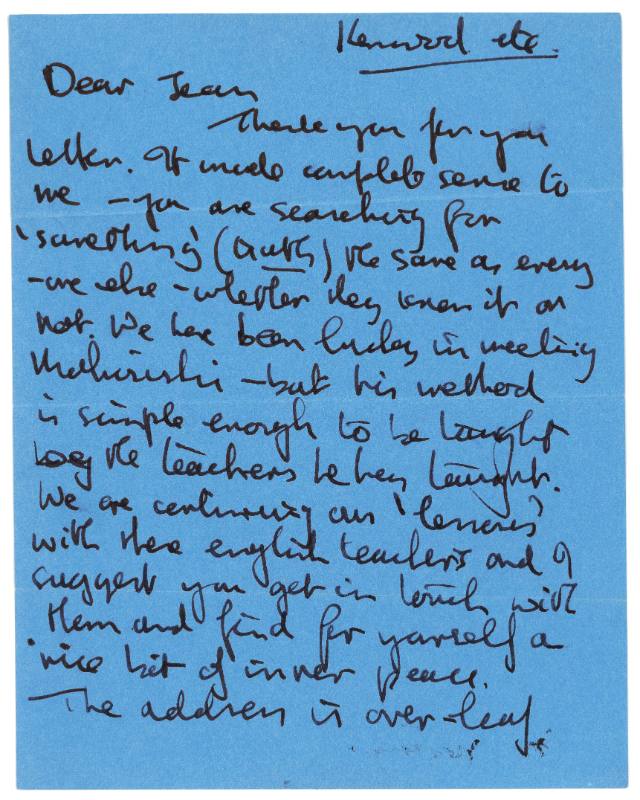 Kenwood etc.
Dear Jean
Thank you for your
letter. It made complete sense to
me – you are searching for
'something' (truth) the same as every
-one else – whether they know it or
not. We have been lucky in meeting
Maharishi – but his method
is simple enough to be taught
by the teachers he has taught.
We are continuing our 'lessons'
with these english teachers and I
suggest you get in touch with
them and find for yourself a
nice bit of inner peace.
The address is over-leaf.